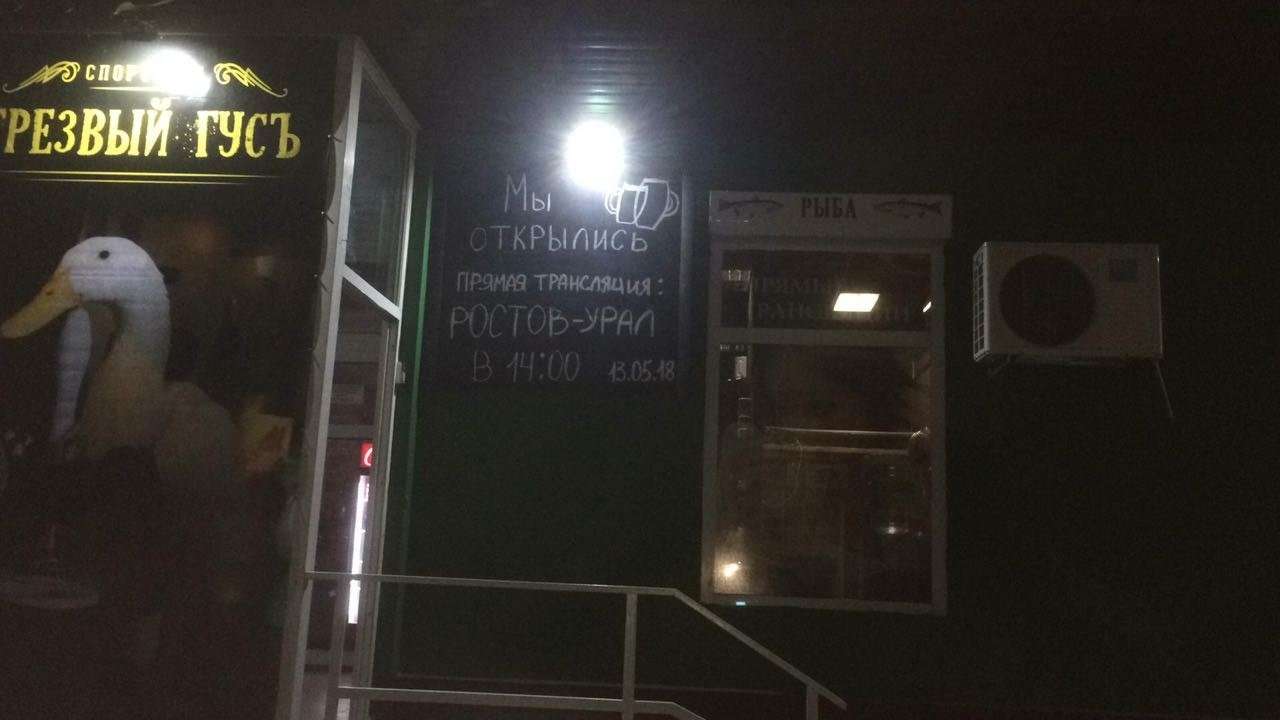 ТРЕЗВЫЙ ГУСЪ
Мы
ОТКРЫЛИСЬ
ПРЯМАЯ ТРАНСЛЯЦИЯ:
РОСТОВ-УРАЛ
В 14:00 13.05.18
РЫБА